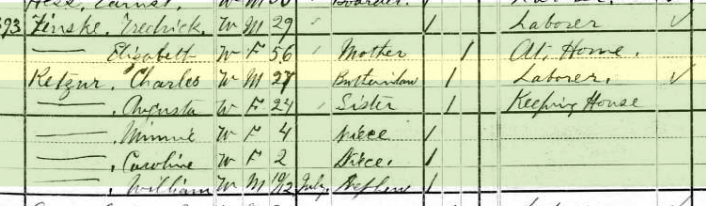 Boarder
393 Zinske, Fredrick. W M 29 Laborer
Elizabeth W F 56 Mother At Home.
Charles W M 27 Laborer.
, Augusta W F 24 Sister Keeping House
, Minnie W F 4 Niece
, Caroline W F 2 Niece.
, William W M 10/12 July Nephew